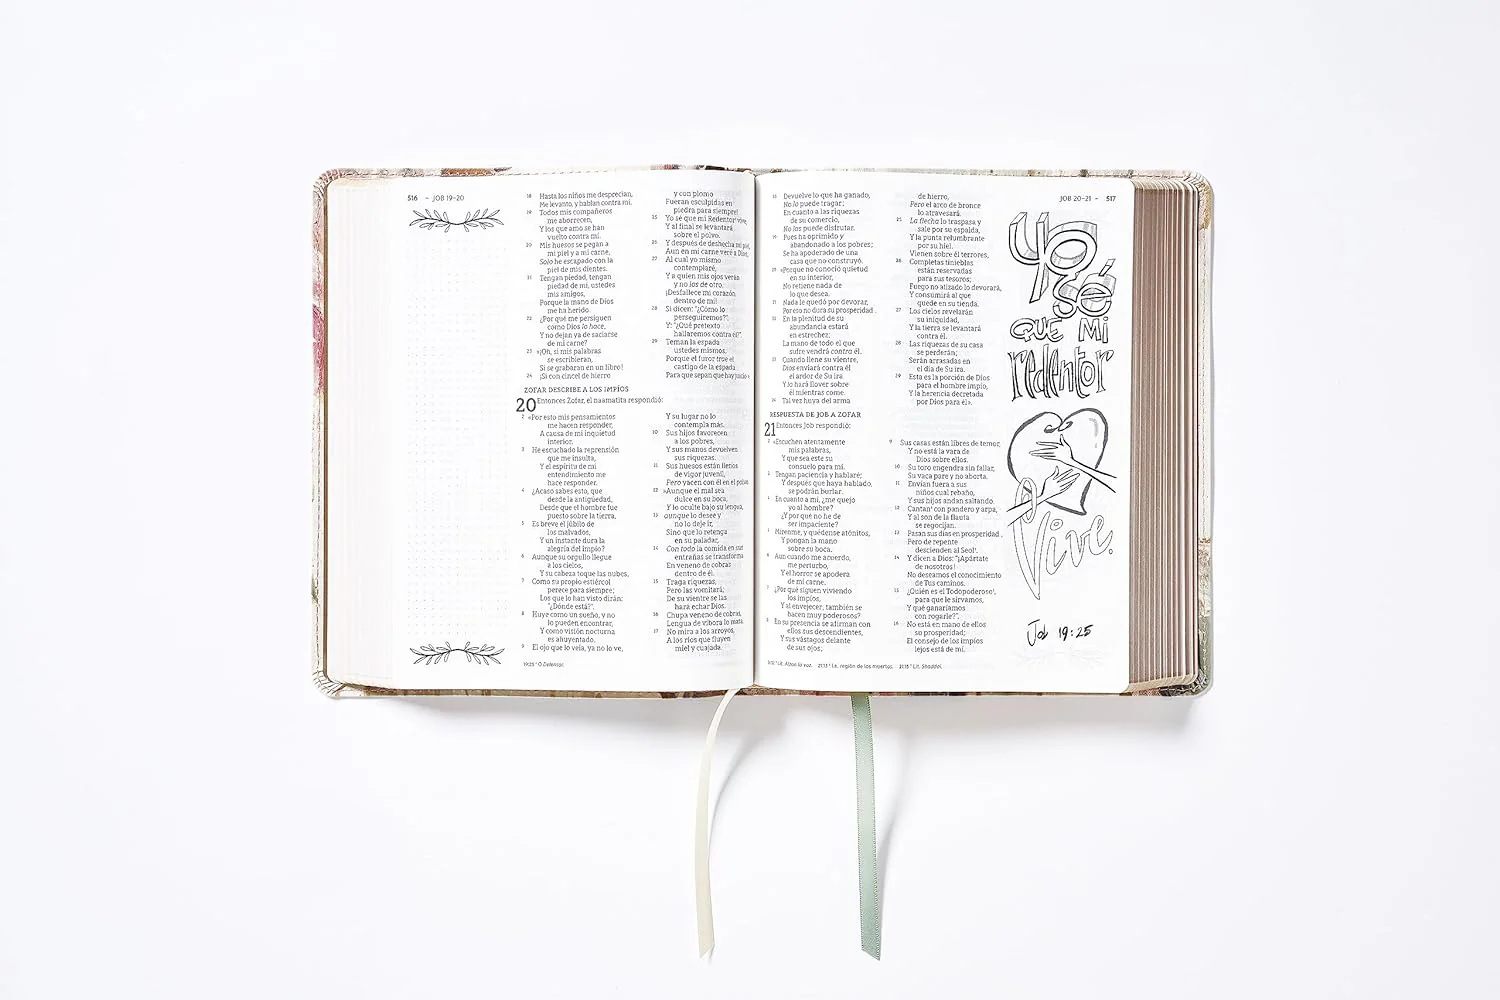 516 – JOB 19–20
18 Hasta los niños me desprecian,
Me levanto, y hablan contra mí.
19 Todos mis compañeros
me aborrecen,
Y los que amo se han
vuelto contra mí.
20 Mis huesos se pegan a
mi piel y a mi carne,
Solo he escapado con la
piel de mis dientes.
21 Tengan piedad, tengan
piedad de mí, ustedes
mis amigos,
Porque la mano de Dios
me ha herido.
22 ¿Por qué me persiguen
como Dios lo hace,
Y no dejan ya de saciarse
de mi carne?
23 »¡Oh, si mis palabras
se escribieran,
Si se grabaran en un libro!
24 ¡Si con cincel de hierro
y con plomo
Fueran esculpidas en
piedra para siempre!
25 Yo sé que mi Redentor vive,
Y al final se levantará
sobre el polvo.
26 Y después de deshecha mi piel,
Aun en mi carne veré a Dios,
27 Al cual yo mismo
contemplaré,
Y a quien mis ojos verán
y no los de otro.
¡Desfallece mi corazón
dentro de mí!
28 Si dicen: "¿Cómo lo
perseguiremos?".
Y: "¿Qué pretexto
hallaremos contra él?".
29 Teman la espada
ustedes mismos,
Porque el furor trae el
castigo de la espada
Para que sepan que hay juicio».
ZOFAR DESCRIBE A LOS IMPÍOS
20 Entonces Zofar, el naamatita respondió:
2 «Por esto mis pensamientos
me hacen responder,
A causa de mi inquietud
interior.
3 He escuchado la reprensión
que me insulta,
Y el espíritu de mi
entendimiento me
hace responder.
4 ¿Acaso sabes esto, que
desde la antigüedad,
Desde que el hombre fue
puesto sobre la tierra,
5 Es breve el júbilo de
los malvados,
Y un instante dura la
alegría del impío?
6 Aunque su orgullo llegue
a los cielos,
Y su cabeza toque las nubes,
7 Como su propio estiércol
perece para siempre;
Los que lo han visto dirán:
"¿Dónde está?".
8 Huye como un sueño, y no
lo pueden encontrar,
Y como visión nocturna
es ahuyentado.
9 El ojo que lo veía, ya no lo ve,
Y su lugar no lo
contempla más.
10 Sus hijos favorecen
a los pobres,
Y sus manos devuelven
sus riquezas.
11 Sus huesos están llenos
de vigor juvenil,
Pero yacen con él en el polvo.
12 »Aunque el mal sea
dulce en su boca,
Y lo oculte bajo su lengua,
13 aunque lo desee y
no lo deje ir,
Sino que lo retenga
en su paladar,
14 Con todo la comida en sus
entrañas se transforma
En veneno de cobras
dentro de él.
15 Traga riquezas,
Pero las vomitará;
De su vientre se las
hará echar Dios.
16 Chupa veneno de cobras,
Lengua de víbora lo mata.
17 No mira a los arroyos,
A los ríos que fluyen
miel y cuajada.
19:25 O Defensor.
JOB 20–21 – 517
18 Devuelve lo que ha ganado,
No lo puede tragar;
En cuanto a las riquezas
de su comercio,
No las puede disfrutar.
19 Pues ha oprimido y
abandonado a los pobres;
Se ha apoderado de una
casa que no construyó.
20 »Porque no conoció quietud
en su interior,
No retiene nada de
lo que desea.
21 Nada le quedó por devorar,
Por eso no dura su prosperidad.
22 En la plenitud de su
abundancia estará
en estrechez;
La mano de todo el que
sufre vendrá contra él.
23 Cuando llene su vientre,
Dios enviará contra él
el ardor de Su ira
Y lo hará llover sobre
él mientras come.
24 Tal vez huya del arma
de hierro,
Pero el arco de bronce
lo atravesará.
25 La flecha lo traspasa y
sale por su espalda,
Y la punta relumbrante
por su hiel.
Vienen sobre él terrores,
26 Completas tinieblas
están reservadas
para sus tesoros;
Fuego no atizado lo devorará,
Y consumirá al que
quede en su tienda.
27 Los cielos revelarán
su iniquidad,
Y la tierra se levantará
contra él.
28 Las riquezas de su casa
se perderán;
Serán arrasadas en
el día de Su ira.
29 Esta es la porción de Dios
para el hombre impío,
Y la herencia decretada
por Dios para él».
RESPUESTA DE JOB A ZOFAR
21 Entonces Job respondió:
2 «Escuchen atentamente
mis palabras,
Y que sea este su
consuelo para mí.
3 Tengan paciencia y hablaré;
Y después que haya hablado,
se podrán burlar.
4 En cuanto a mí, ¿me quejo
yo al hombre?
¿Y por qué no he de
ser impaciente?
5 Mírenme, y quédense atónitos,
Y pongan la mano
sobre su boca.
6 Aun cuando me acuerdo,
me perturbo,
Y el horror se apodera
de mi carne.
7 ¿Por qué siguen viviendo
los impíos,
Y al envejecer, también se
hacen muy poderosos?
8 En su presencia se afirman con
ellos sus descendientes,
Y sus vástagos delante
de sus ojos;
9 Sus casas están libres de temor,
Y no está la vara de
Dios sobre ellos.
10 Su toro engendra sin fallar,
Su vaca pare y no aborta.
11 Envían fuera a sus
niños cual rebaño,
Y sus hijos andan saltando.
12 Cantan con pandero y arpa,
Y al son de la flauta
se regocijan.
13 Pasan sus días en prosperidad,
Pero de repente
descienden al Seol.
14 Y dicen a Dios: "¡Apártate
de nosotros!
No deseamos el conocimiento
de Tus caminos.
15 ¿Quién es el Todopoderoso,
para que le sirvamos,
Y qué ganaríamos
con rogarle?".
16 No está en mano de ellos
su prosperidad;
El consejo de los impíos
lejos está de mí.
Lit. Alzan la voz. 21:13 I.e. región de los muertos. 21:15 Lit. Shaddai.
Yo
sé
QUE Mi
redentor
Vive.
Job 19:25